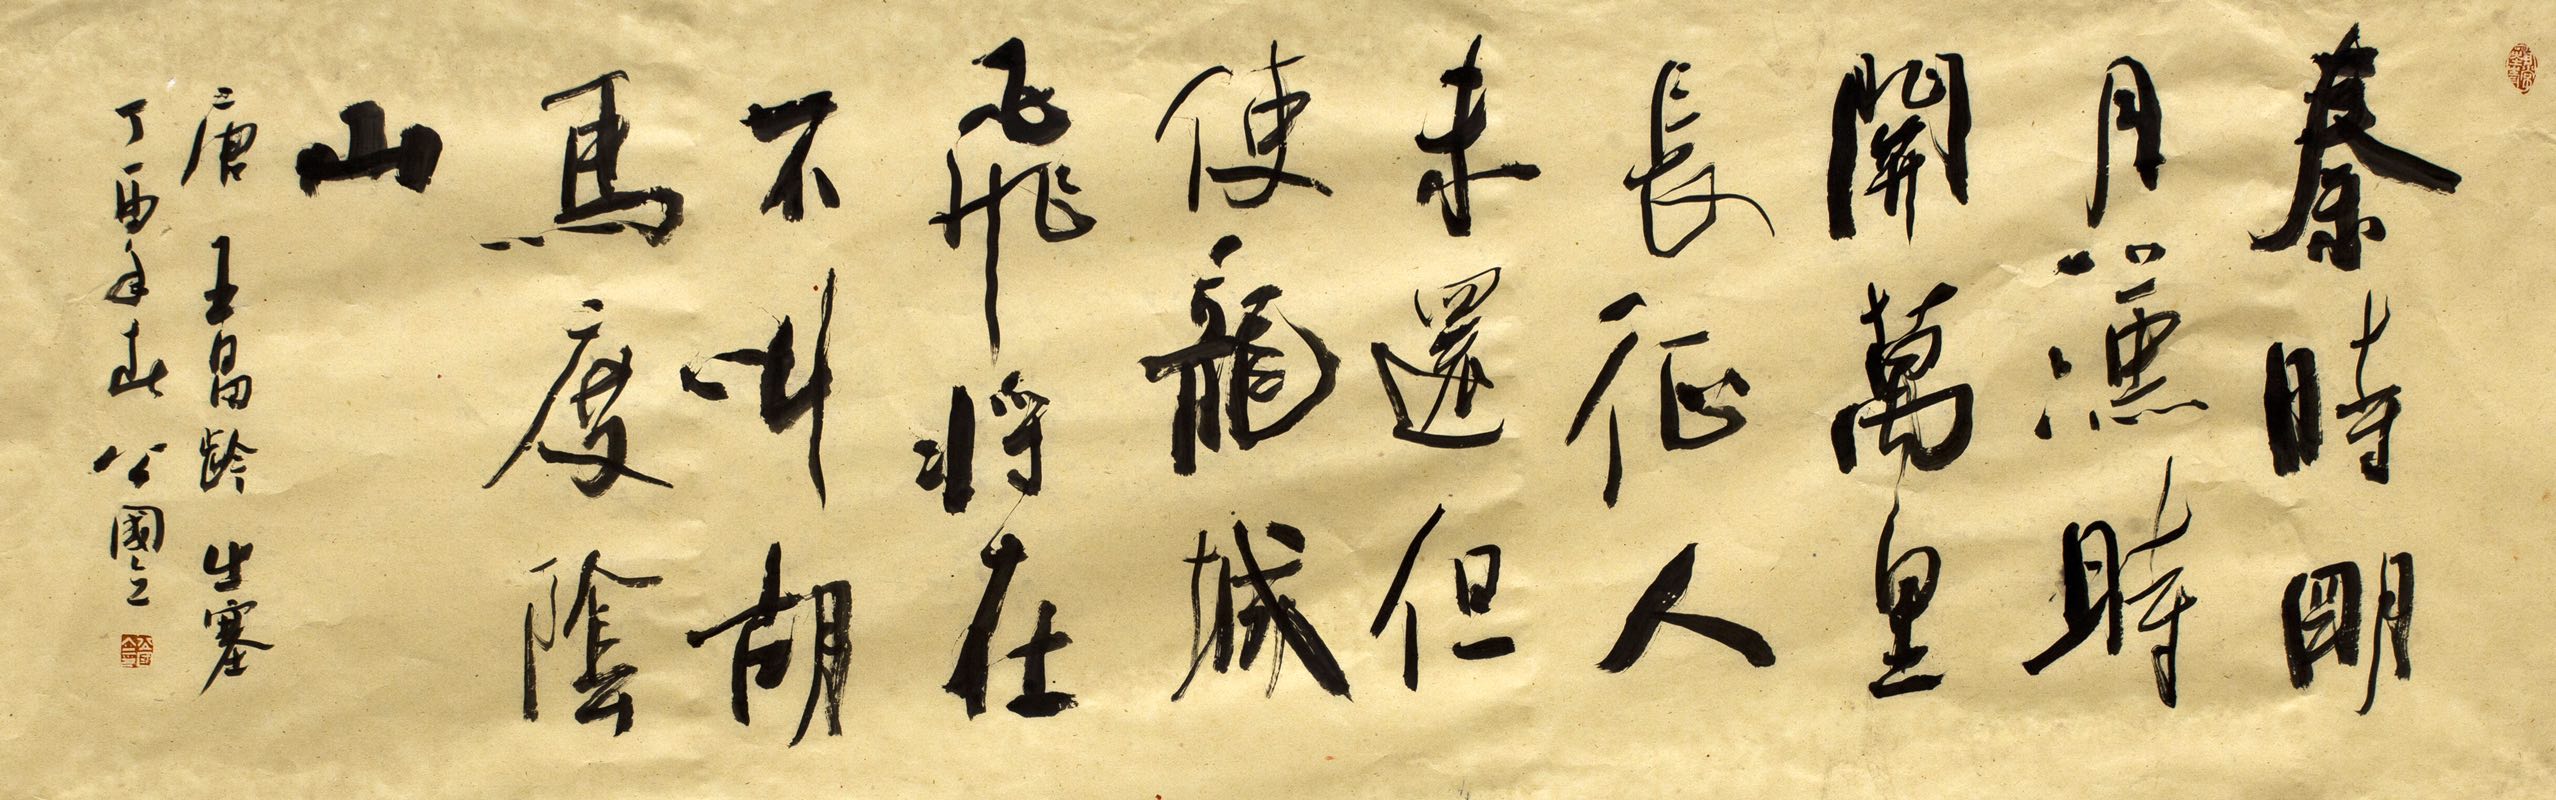 秦時明
月漢時
關萬里
長征人
未還但
使龍城
飛將在
不叫胡
馬度陰
山
唐 王昌龄 出塞
丁酉年春 公國